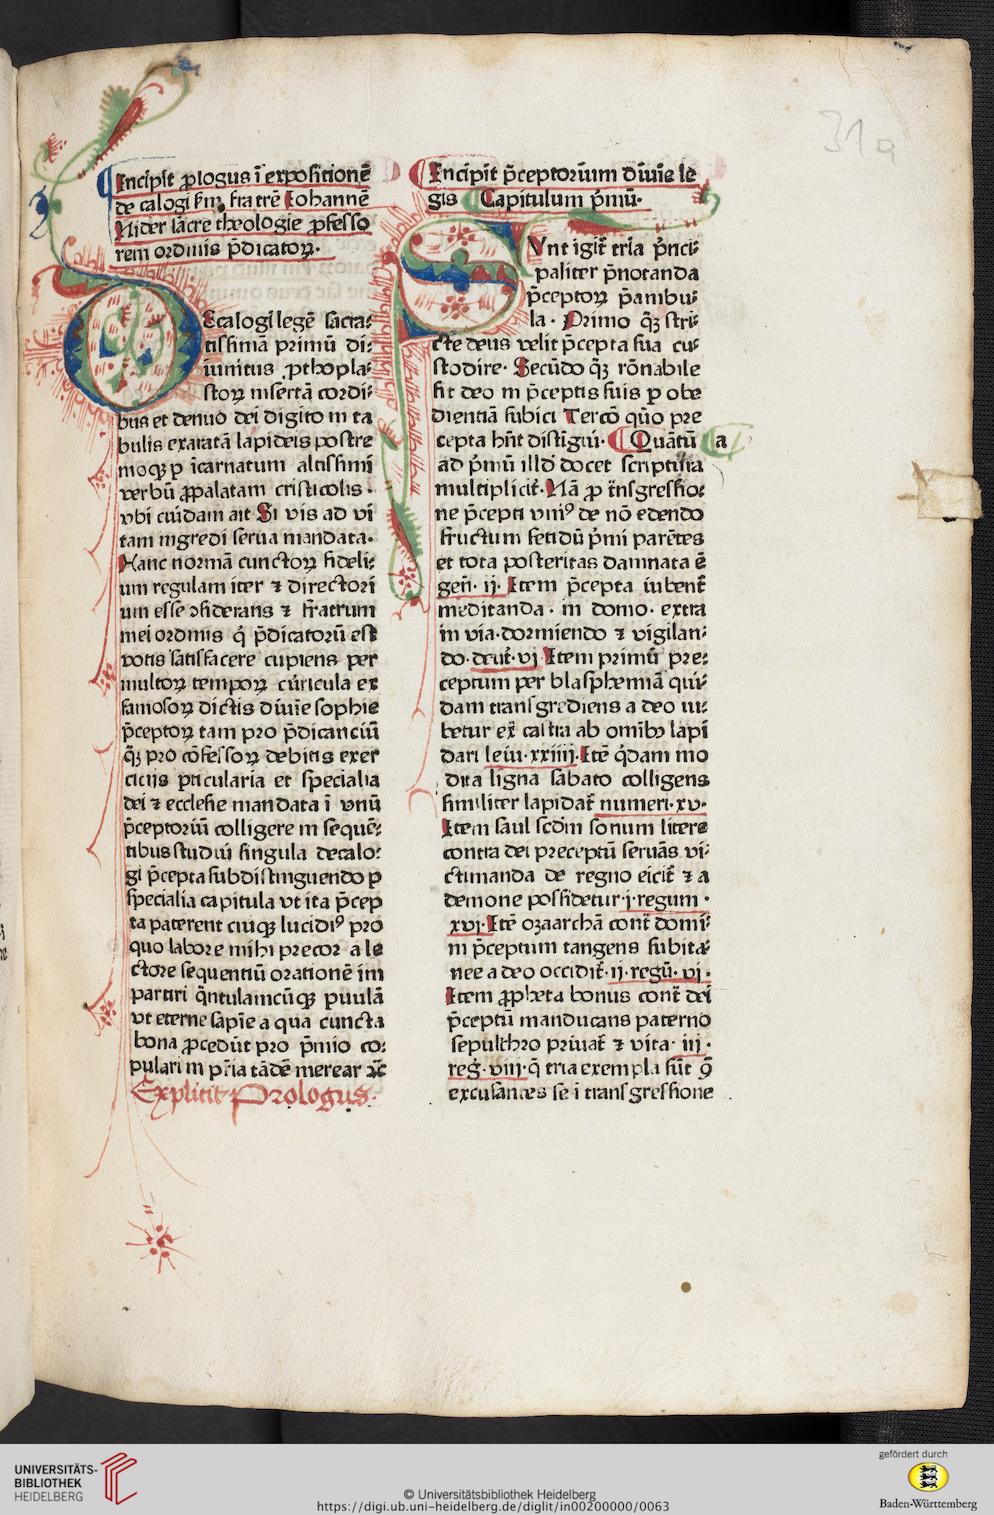 31a
Incipit ꝓlogus ī expositionē
de calogi ẜm fratrē Iohannē
Nider sacre theologie ꝓfesso
rem ordinis p̄dicatoꝝ.
Decalogi legē sacra⸗
tissimā primū di⸗
uinitus ꝓthopla⸗
stoꝝ insertā cordi⸗
bus et denuo dei digito in ta
bulis exaratā lapideis postre
moqꝫ ꝑ īcarnatum altissimi
verbū ꝓpalatam cristicolis.
vbi cuidam ait Si vis ad vi
tam ingredi serua mandata.
Hanc normā cunctoꝝ fideli⸗
um regulam iter ⁊ directori
um esse ↄsiderans ⁊ fratrum
mei ordinis q̄ p̄dicatorū est
votis satisfacere cupiens per
multoꝝ tempoꝝ curricula ex
famosoꝝ dictis diuīe sophie
p̄ceptoꝝ tam pro p̄dicanciū
qꝫ pro cōfessoꝝ debitis exer
ciciis ꝑticularia et specialia
dei ⁊ ecclesie mandata ī vnū
p̄ceptoriū colligere in sequē⸗
tibus studui singula decalo⸗
gi p̄cepta subdistinguendo ꝑ
specialia capitula vt ita p̄cep
ta paterent cuiqꝫ lucidiꝰ pro
quo labore mihi precor a le
ctore sequentiū orationē im
partiri q̄ntulamcūqꝫ puulā
vt eterne sapīe a qua cuncta
bona ꝓcedūt pro p̄mio co⸗
pulari in pr̄ia tādē merear
Explicit Prologus.
Incipit p̄ceptorium diuīe le
gis Capitulum p̄mū.
Sunt igit̄ tria p̄nci⸗
paliter p̄notanda
p̄ceptoꝝ p̄ambu⸗
la. Primo qꝫ stri⸗
cte deus velit p̄cepta sua cu⸗
stodire. Secūdo qꝫ rōnabile
sit deo in p̄ceptis suis ꝑ obe
dientiā subici Tercō quō pre
cepta hn̄t distīgui. Quātū a
ad p̄mū illd docet scriptura
multiplicit̄. Nā ꝓ trā̄sgressio⸗
ne p̄cepti vniꝰ de nō edendo
fructum fetidū p̄mi parētes
et tota posteritas damnata ē
gen̄. ij. Item p̄cepta iubent̄
meditanda. in domo. extra
in via. dormiendo ⁊ vigilan⸗
do. deut̄. vj Item primū pre⸗
ceptum per blasphemiā qui⸗
dam transgrediens a deo iu⸗
betur ex̄ castra ab omībꝫ lapi
dari leui. xxiiij. Itē q̄dam mo
dica ligna sabato colligens
similiter lapidat̄ numeri. xv.
Item saul scdm sonum litere
contra dei preceptū seruās vi⸗
ctimanda de regno eicit̄ ⁊ a
demone possidetur. j. regum.
xvj. Itē ozaarchā cont̄ domi⸗
ni p̄ceptum tangens subita⸗
nee a deo occidit̄. ij. regū. vj.
Item ꝓpheta bonus cont̄ dei
p̄ceptū manducans paterno
sepulchro priuat̄ ⁊ vita. iij.
reḡ. viij. q̄ tria exempla sūt ꝯ
excusantes se ī transgressione
UNIVERSITÄTS-
BIBLIOTHEK
HEIDELBERG
© Universitätsbibliothek Heidelberg
https://digi.ub.uni-heidelberg.de/diglit/in00200000/0063
gefördert durch
Baden-Württemberg